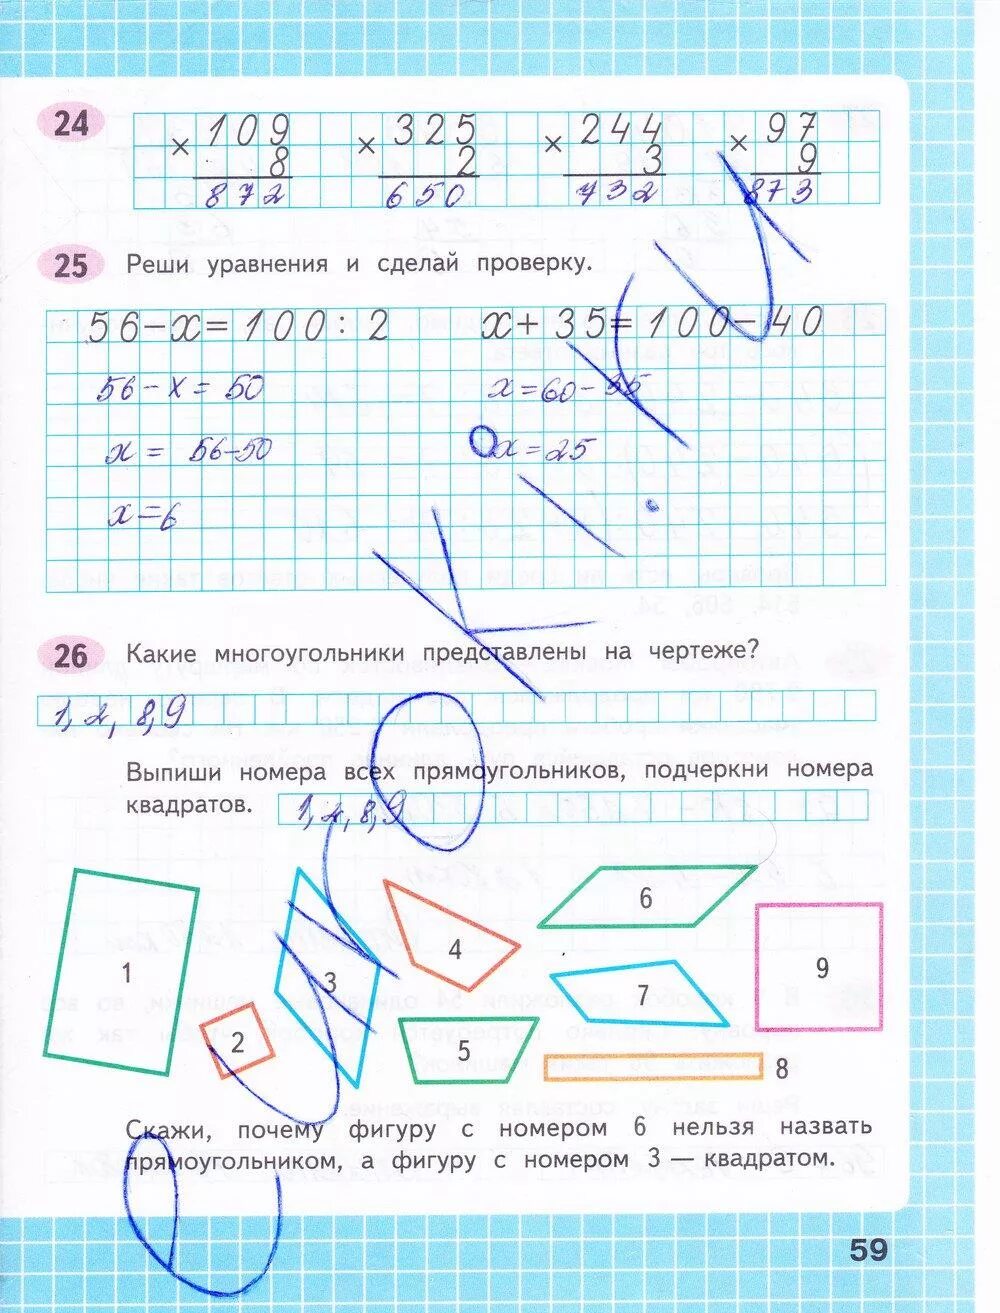 24
× 109 × 325 × 244 × 97
8 2 3 9
872 650 732 873
25 Реши уравнения и сделай проверку.
56-x=100:2 x+35=100-40
56-x=50 x=60-35
x= 56-50 x=25
x=6
26 Какие многоугольники представлены на чертеже?
1, 2, 8, 9
Выпиши номера всех прямоугольников, подчеркни номера
квадратов. 1, 2, 8, 9
1 2 3 4 5 6 7 8 9
Скажи, почему фигуру с номером 6 нельзя назвать
прямоугольником, а фигуру с номером 3 — квадратом.
59